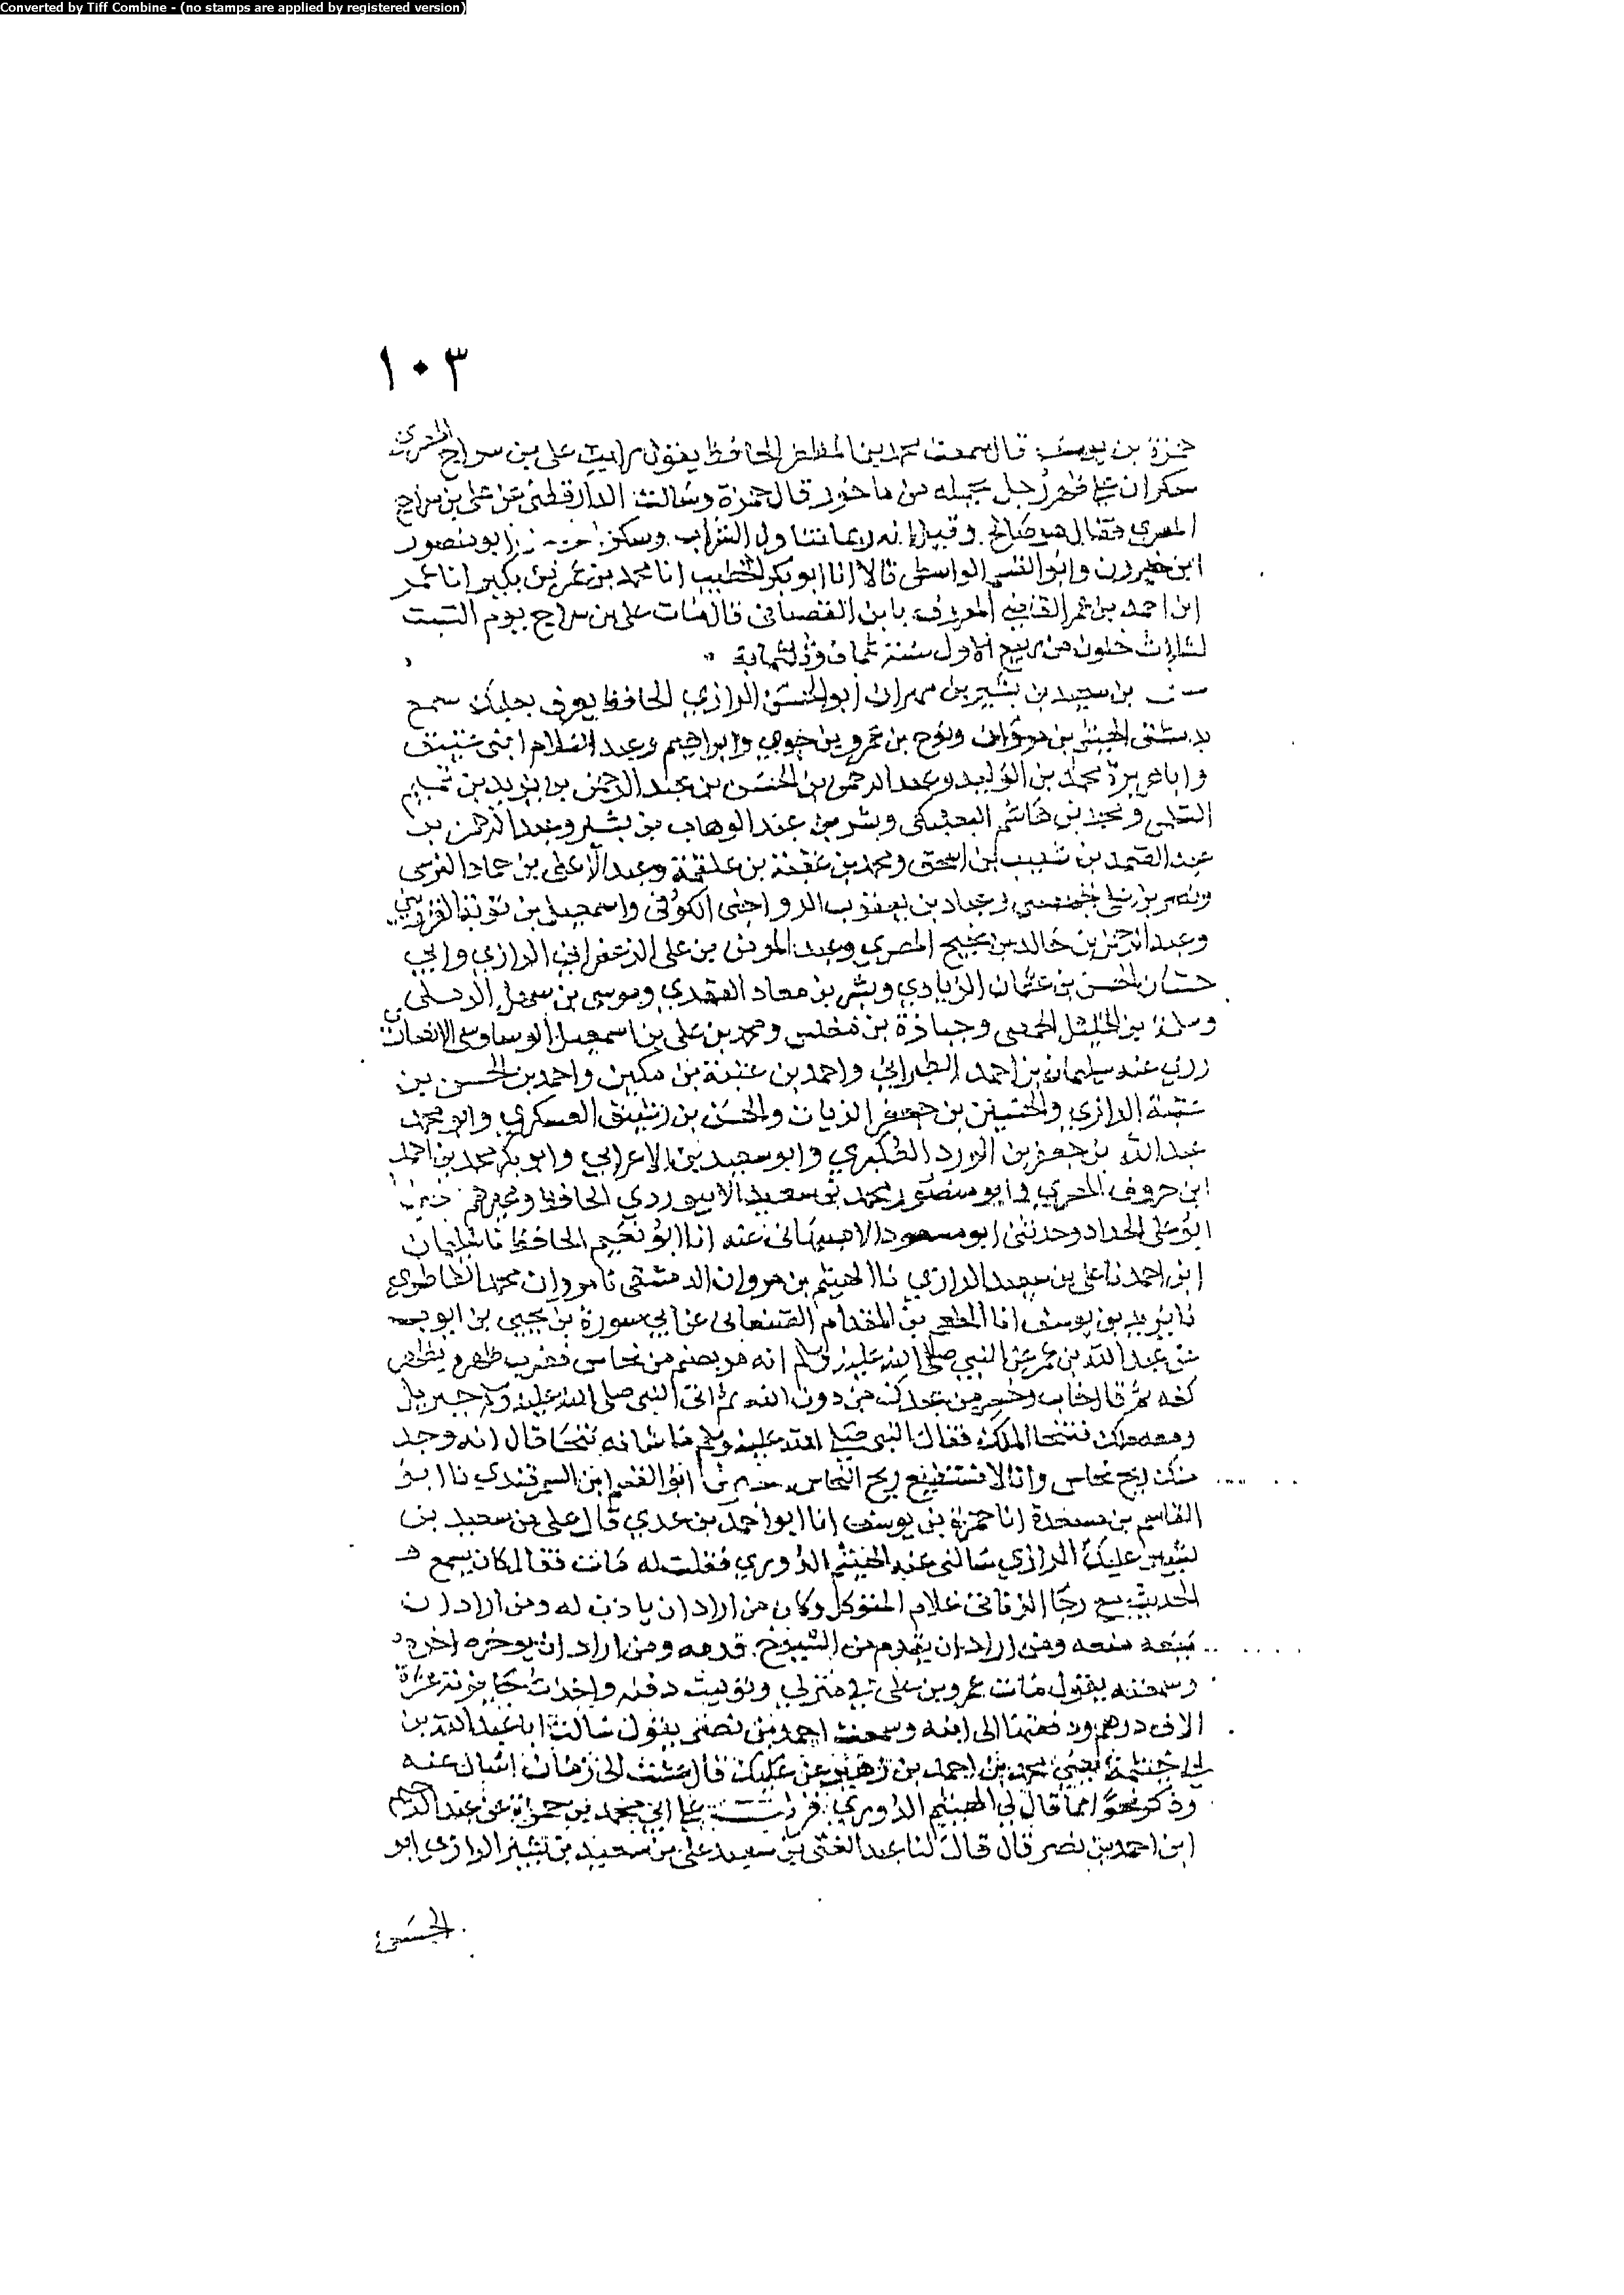 Converted by Tiff Combine - (no stamps are applied by registered version)
١٠٣
حمزة بن يوسف قال سمعت محمد بن المظفر الحافظ يقول رايت على بن سراج المصري
سكران على ظهر رجل يحمله من ماخور قال حمزة وسالت الدارقطني عن على بن سراج
المصري فقال هو صالح وقيل انه ربما تناول الشراب وسكر ابو منصور
ابن خيرون وابو القسم الواسطي قالا انا ابو بكر الخطيب انا محمد بن عمر بن بكير انا
ابن احمد بن عمر القاضي المعروف بابن القصباني قال مات على بن سراج يوم السبت
لثلاث خلون من ربيع الاول سنة ثمان وثلثمائة
بن سعيد بن بشير بن مهران ابو الحسن الرازي الحافظ يعرف بعليك سمع
بدمشق الهيثم بن مروان ونوح بن عمرو بن حوي وابراهيم وعبد السلام ابني عتيق
وابا هريرة محمد بن الوليد وعبد الرحمن بن الحسن بن عبد الرحمن بن يزيد بن تميم
ومحمد بن هاشم البعلبكي وبشر بن عبد الوهاب بن بشير وعبد الرحمن بن
عبد الصمد بن شعيب بن اسحق ومحمد بن عقبة بن علقمة وعبد الاعلى بن حماد النرسي
ونصر بن على الجهضمي وعباد بن يعقوب الرواجني الكوفي واسمعيل بن توبة القزويني
وعبد الرحمن بن خالد بن نجيح المصري وعبد المومن بن على الزعفراني الرازي وابي
حسان الحسن بن عثمان الزيادي وبشر بن معاد العقدي وموسى بن سهل الرملي
وسلمة بن الخليل الحمصي وجبارة بن مغلس ومحمد بن على بن اسمعيل
روى عنه سليمان بن احمد الطبراني واحمد بن عتبة بن مكين واحمد بن الحسن بن
عتبة الرازي والحسين بن جعفر الزيات والحسن بن رشيق العسكري وابو محمد
عبد الله بن جعفر بن الورد وابو سعيد بن الاعرابي وابو بكر محمد بن احمد
ابن خروف المصري وابو منصور محمد بن سعيد الابيوردي الحافظ وغيرهم
ابو على الحداد وحدثني ابو مسعود الاصبهاني عنه انا ابو نعيم الحافظ نا سليمان
ابن احمد نا على بن سعيد الرازي نا الهيثم بن مروان الدمشقي نا مروان محمد الطاطري
نا يزيد بن يوسف انا المطعم بن المقدام الصنعاني عن ابي سورة بن يحيى بن ايوب
عن عبد الله بن عمر عن النبي صلى الله عليه وسلم انه مر بصنم من نحاس فضرب ظهره بظهر
كفه ثم قال خاب وخسر من عبدك من دون الله ثم اتى النبي صلى الله عليه وسلم جبريل
ومعه ملك فتنحا الملك فقال النبي صلى الله عليه وسلم ما شانه تنحا قال انه وجد
منك ريح نحاس وانا لا نستطيع ريح النحاس ابو القسم ابن السمرقندي نا ابو
القاسم بن مسعدة انا حمزة بن يوسف انا ابو احمد بن عدي قال على بن سعيد بن
بشير عليك الرازي سالني عنه الهيثم الدوري فقلت له مات فقال كان يسمع
الحديث مع رجا غلام المتوكل وكان من اراد ان ياذن له ومن اراد ان
يمنعه منعه ومن اراد ان يقدم من الشيوخ قدمه ومن اراد ان يوخره اخره
وسمعته يقول مات عمرو بن على في منزلي وتوليت دفنه واخذت
الاف درهم ودفعتها الى ابنه وسمعت احمد بن نصر يقول سالت ابا عبد الله بن
ابي خيثمة يعني محمد بن احمد بن زهير عن عليك قال عشت الى زمان اسال عنه
وذكر نحوا مما قال لي الهيثم الدوري قرات على ابي محمد بن حمزة عن عبد الرحيم
ابن احمد بن نصر قال قال لنا عبد الغني بن سعيد على بن سعيد بن بشير الرازي ابو
الحسن